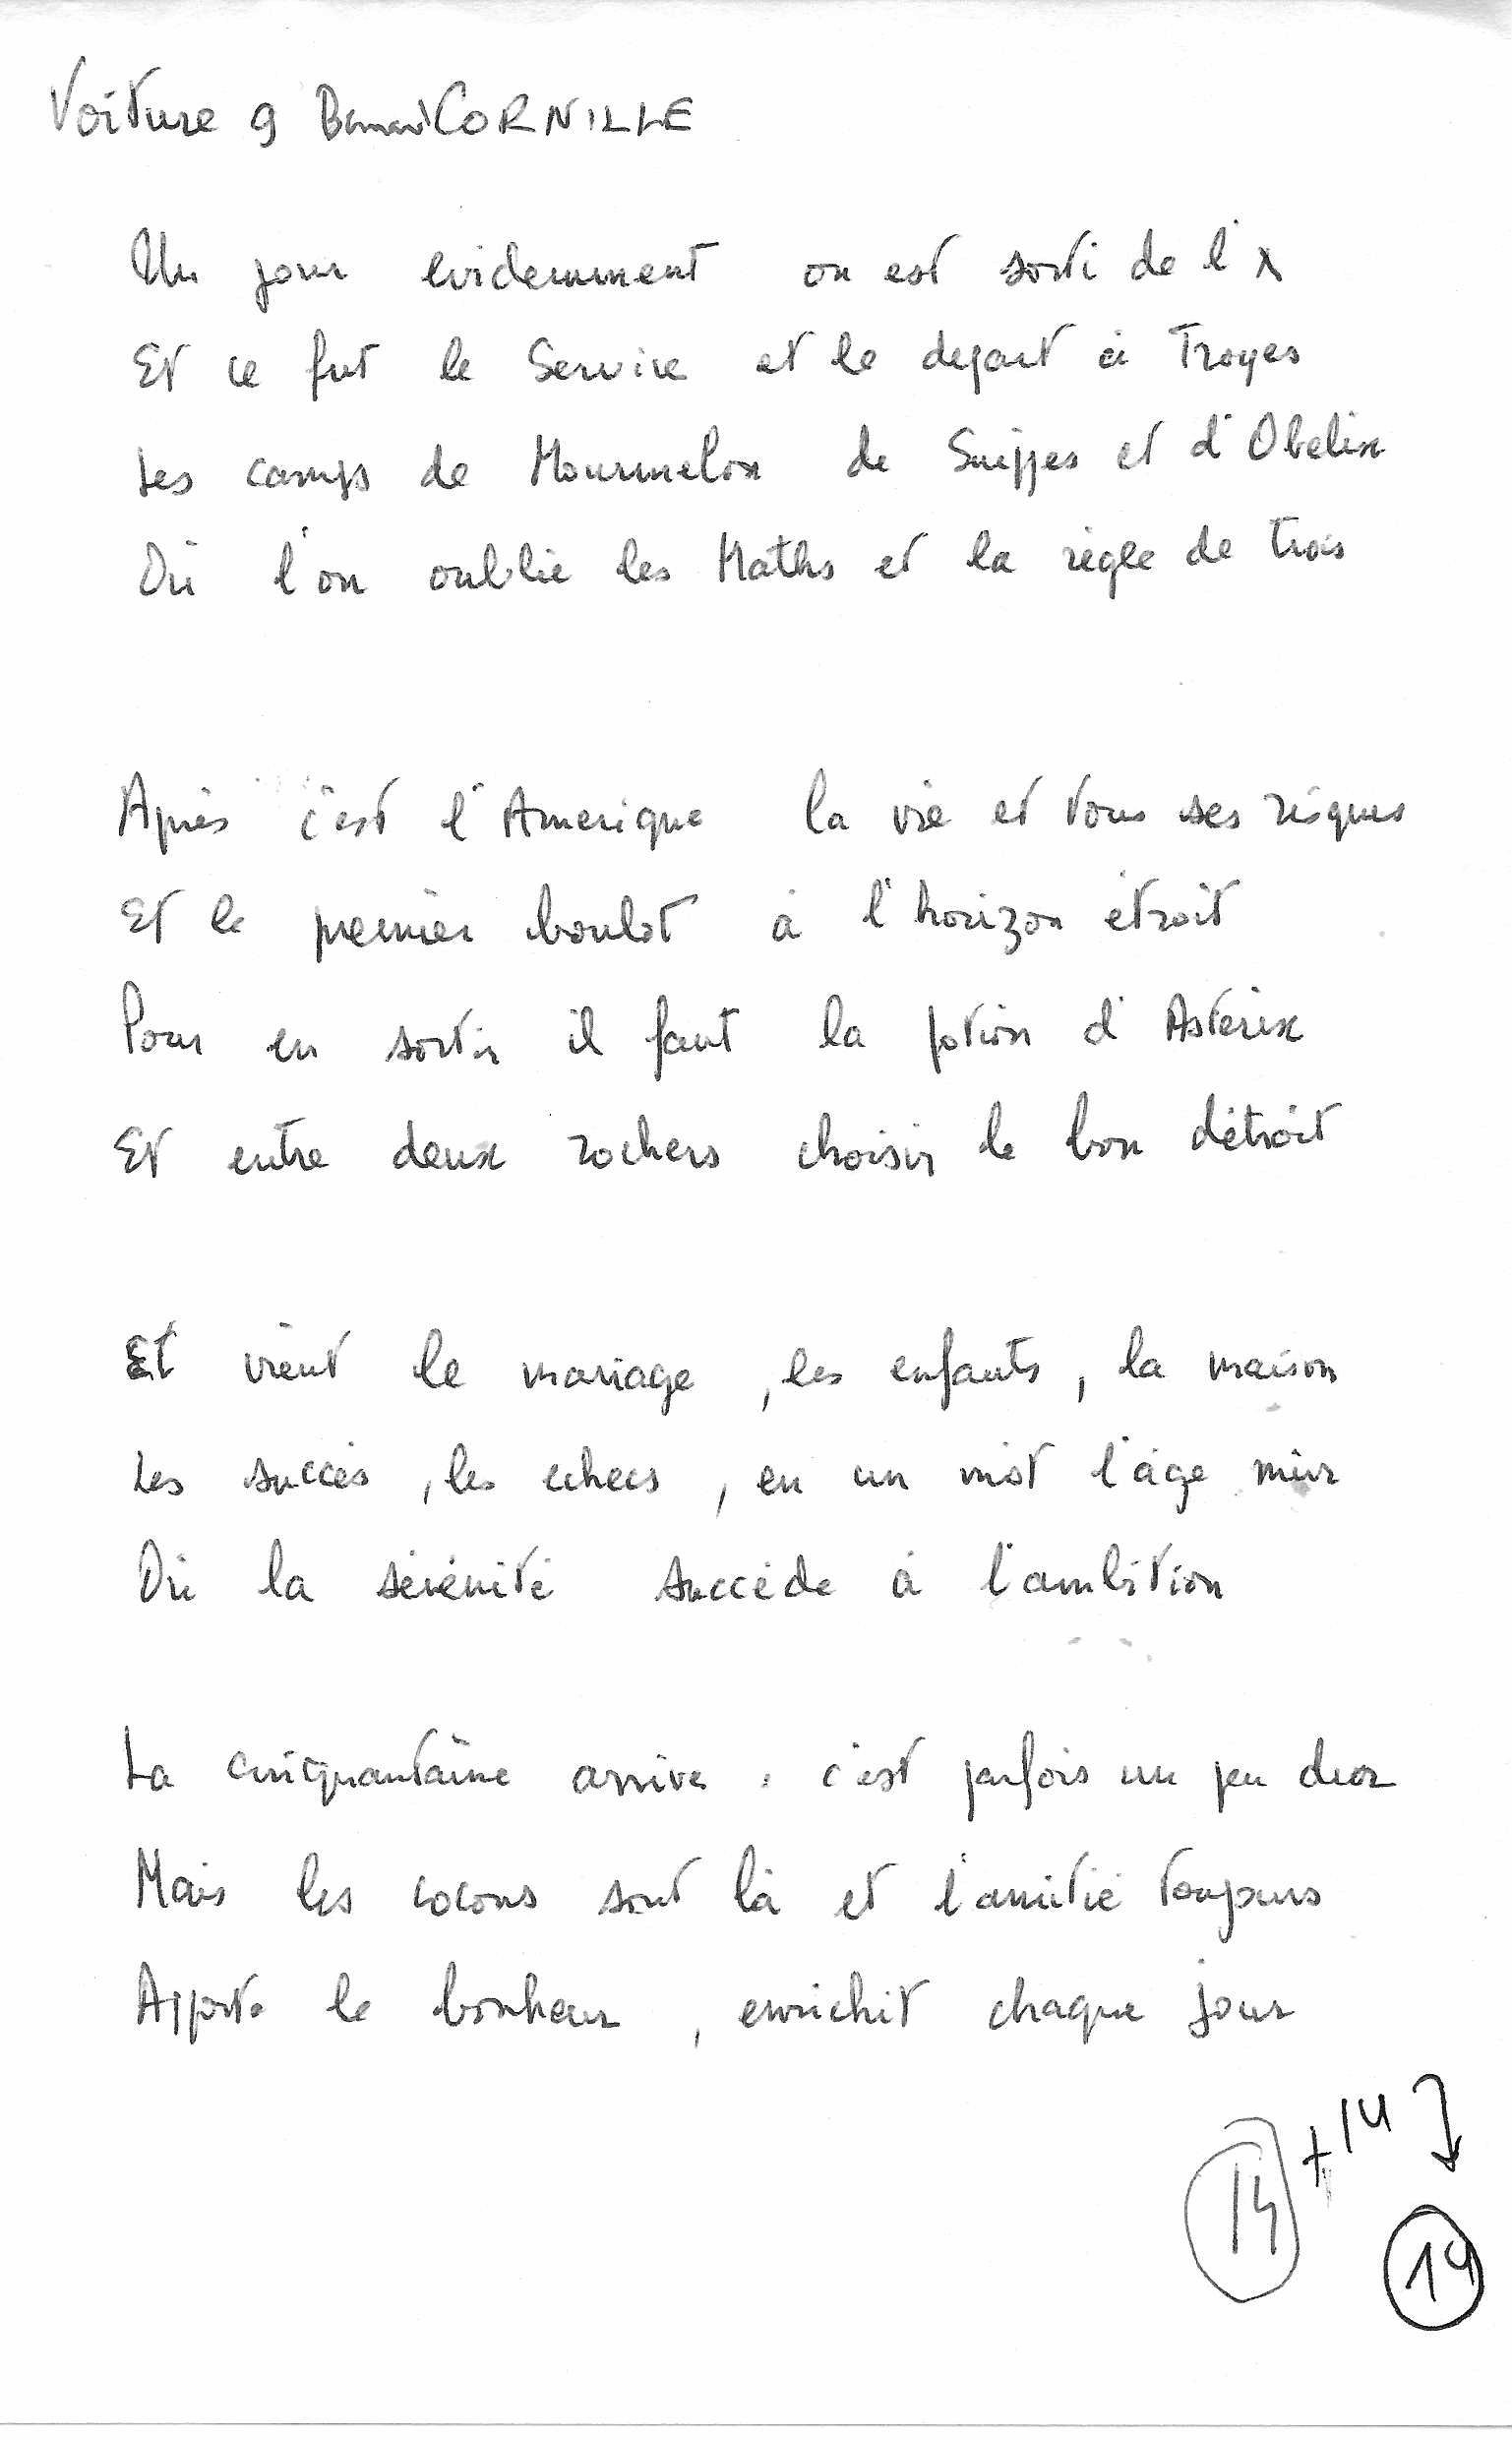 Voiture 9 Bernard CORNILLE
Un jour evidemment on est sorti de l'X
Et ce fut le Service et le depart à Troyes
Les camps de Mourmelon de Suippes et d'Obelix
Où l'on oublie les Maths et la règle de trois
Après c'est l'Amerique la vie et tous ses risques
Et le premier boulot à l'horizon étroit
Pour en sortir il faut la potion d'Astérix
Et entre deux rochers choisir le bon détroit
Et vient le mariage, les enfants, la maison
Les succès, les echecs, en un mot l'âge mûr
Où la sérénité succède à l'ambition
La cinquantaine arrive, c'est parfois un peu dur
Mais les cocons sont là et l'amitié toujours
Apporte le bonheur, enrichit chaque jour
14 + 14
14